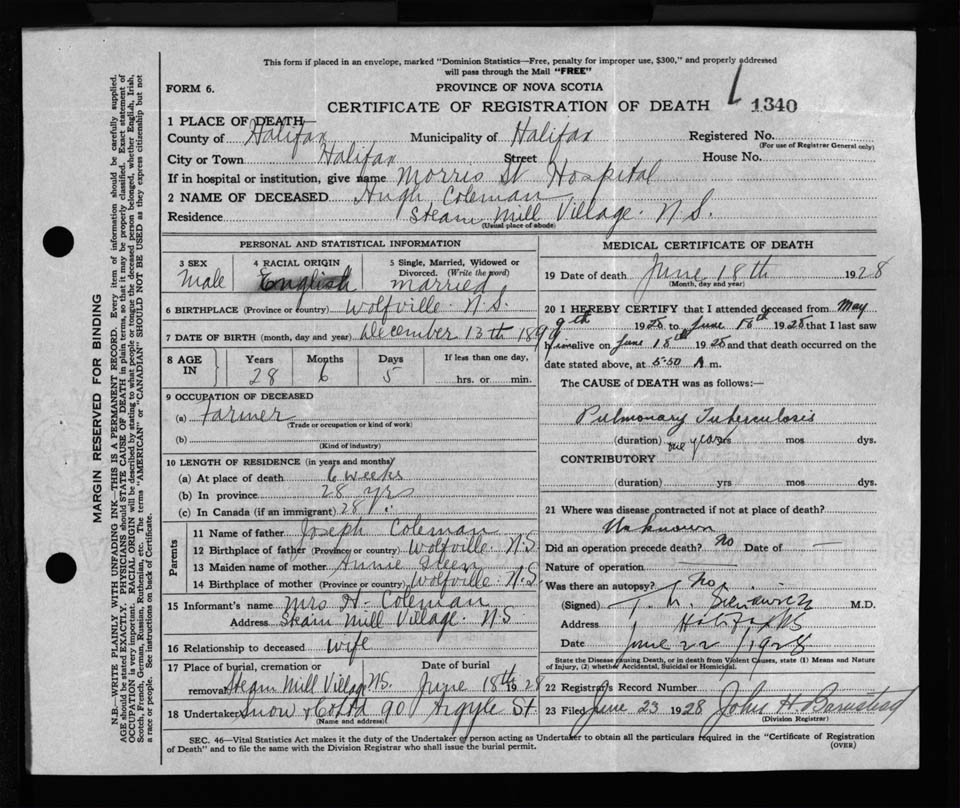 This form if placed in an envelope, marked "Dominion Statistics—Free, penalty for improper use, $300," and properly addressed
will pass through the Mail "FREE"
FORM 6.
PROVINCE OF NOVA SCOTIA
CERTIFICATE OF REGISTRATION OF DEATH 1340
1 PLACE OF DEATH—
County of Halifax Municipality of Halifax Registered No.
(For use of Registrar General only)
City or Town Halifax Street House No.
If in hospital or institution, give name Morris St Hospital
2 NAME OF DECEASED Hugh Coleman
Residence Steam Mill Village. N.S.
(Usual place of abode)
PERSONAL AND STATISTICAL INFORMATION
3 SEX Male
4 RACIAL ORIGIN English
5 Single, Married, Widowed or Divorced. (Write the word) married
6 BIRTHPLACE (Province or country) Wolfville N.S.
7 DATE OF BIRTH (month, day and year) December 13th 1899
8 AGE IN Years Months Days If less than one day,
28 6 5 hrs. or min.
9 OCCUPATION OF DECEASED
(a) Farmer
(Trade or occupation or kind of work)
(b)
(Kind of industry)
10 LENGTH OF RESIDENCE (in years and months)
(a) At place of death 6 weeks
(b) In province 28 yrs
(c) In Canada (if an immigrant) 28 "
Parents
11 Name of father Joseph Coleman
12 Birthplace of father (Province or country) Wolfville N.S.
13 Maiden name of mother Annie
14 Birthplace of mother (Province or country) Wolfville N.S.
15 Informant's name Mrs H. Coleman
Address Steam Mill Village. NS
16 Relationship to deceased Wife
17 Place of burial, cremation or Date of burial
removal Steam Mill Village N.S. June 18th 1928
18 Undertaker Snow & Co Ltd 90 Argyle St.
(Name and address)
MEDICAL CERTIFICATE OF DEATH
19 Date of death June 18th 1928
(Month, day and year)
20 I HEREBY CERTIFY that I attended deceased from May
9th 1928 to June 18th 1928 that I last saw
him alive on June 18th 1928 and that death occurred on the
date stated above, at 5-50 A m.
The CAUSE of DEATH was as follows:—
Pulmonary Tuberculosis
(duration) one year yrs mos dys.
CONTRIBUTORY
(duration) yrs mos dys.
21 Where was disease contracted if not at place of death?
Unknown
Did an operation precede death? No Date of —
Nature of operation —
Was there an autopsy? No
(Signed) M.D.
Address Halifax NS
Date June 22 / 1928
State the Disease causing Death, or in death from Violent Causes, state (1) Means and Nature
of Injury, (2) whether Accidental, Suicidal or Homicidal.
22 Registrar's Record Number
23 Filed June 23 1928 John H. Barnstead
(Division Registrar)
SEC. 46—Vital Statistics Act makes it the duty of the Undertaker or person acting as Undertaker to obtain all the particulars required in the "Certificate of Registration
of Death" and to file the same with the Division Registrar who shall issue the burial permit. (OVER)
MARGIN RESERVED FOR BINDING
N.B.—WRITE PLAINLY WITH UNFADING INK—THIS IS A PERMANENT RECORD. Every item of information should be carefully supplied.
AGE should be stated EXACTLY. PHYSICIANS should STATE CAUSE OF DEATH in plain terms, so that it may be properly classified. Exact statement of
OCCUPATION is very important. RACIAL ORIGIN will be described by stating to what people or tongue the deceased person belonged, whether English, Irish,
Scotch, French, German, Russian, Ruthenian, etc. The terms "AMERICAN" or "CANADIAN" SHOULD NOT BE USED as they express citizenship but not
a race or people. See instructions on back of Certificate.